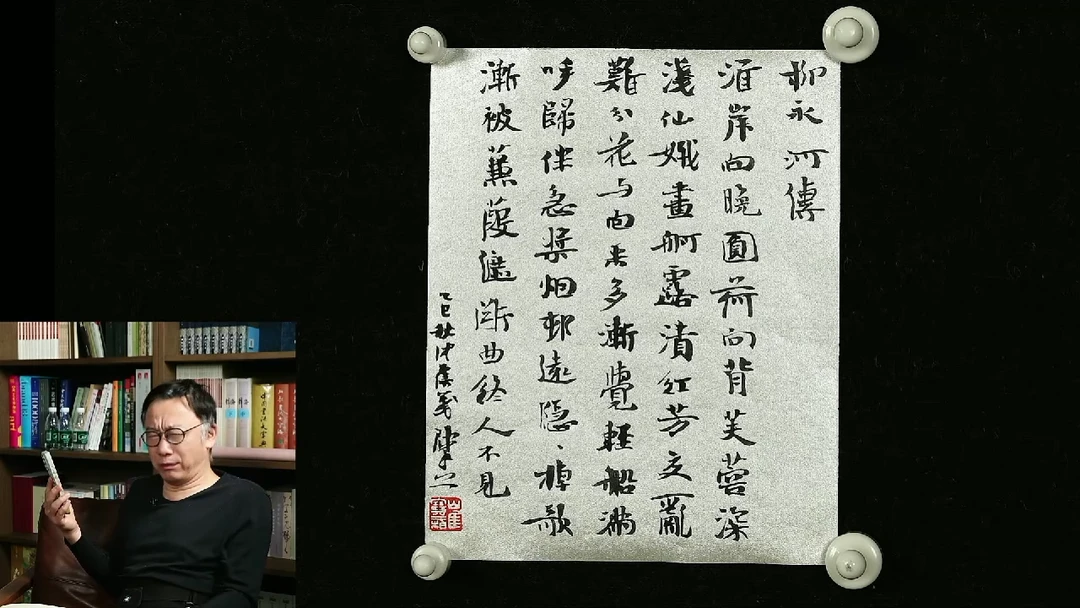 柳永河傳
淮岸向晚圓荷向背芙蓉深
淺仙娥畫舸露漬紅芳交亂
難分花与面采多漸覺輕船满
呼歸伴急槳烟邨遠隱、棹歌
漸被蒹葭遮断曲終人不見
乙巳秋